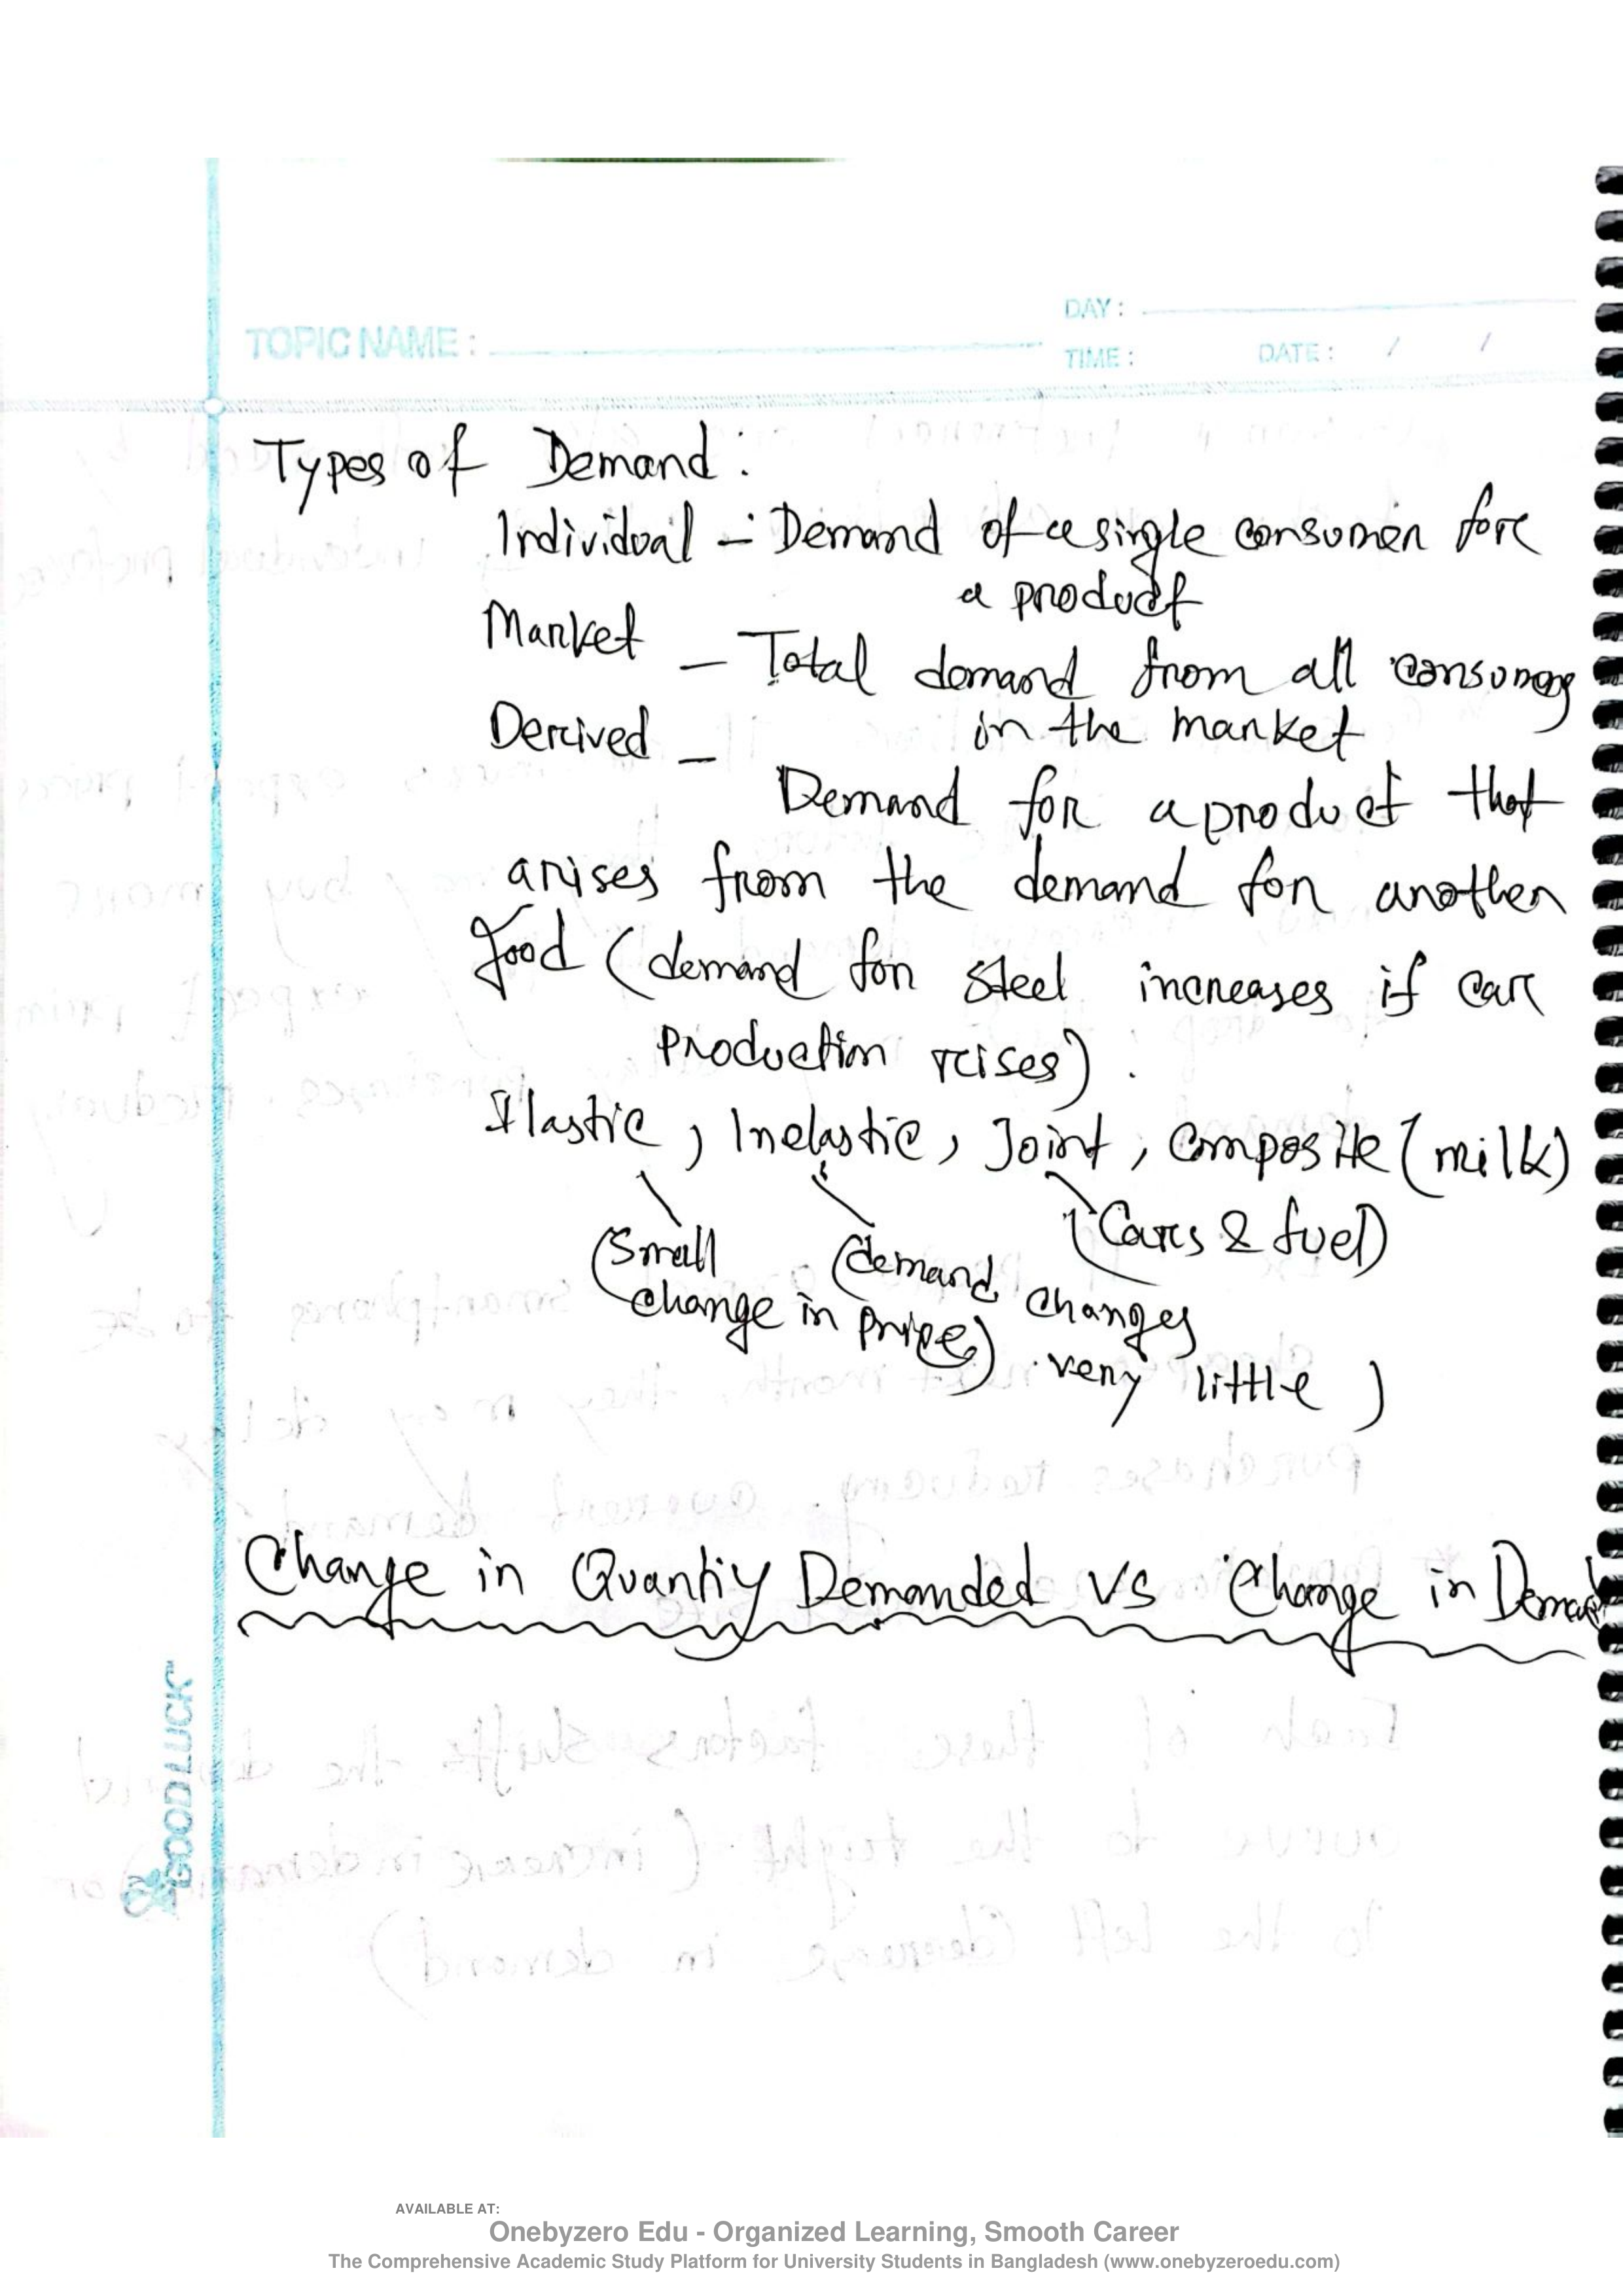 DAY :
TOPIC NAME :
TIME : DATE : / /
Types of Demand :
Individual - Demand of a single consumer for
a product
Market - Total demand from all consumers
in the market
Derived -
Demand for a product that
arises from the demand for another
good (demand for steel increases if car
Production rises).
Elastic, Inelastic, Joint, Composite (milk)
(Cars & fuel)
(Small change in price)
(demand changes very little)
Change in Quantiy Demanded vs Change in Demand
GOODLUCK
AVAILABLE AT:
Onebyzero Edu - Organized Learning, Smooth Career
The Comprehensive Academic Study Platform for University Students in Bangladesh (www.onebyzeroedu.com)